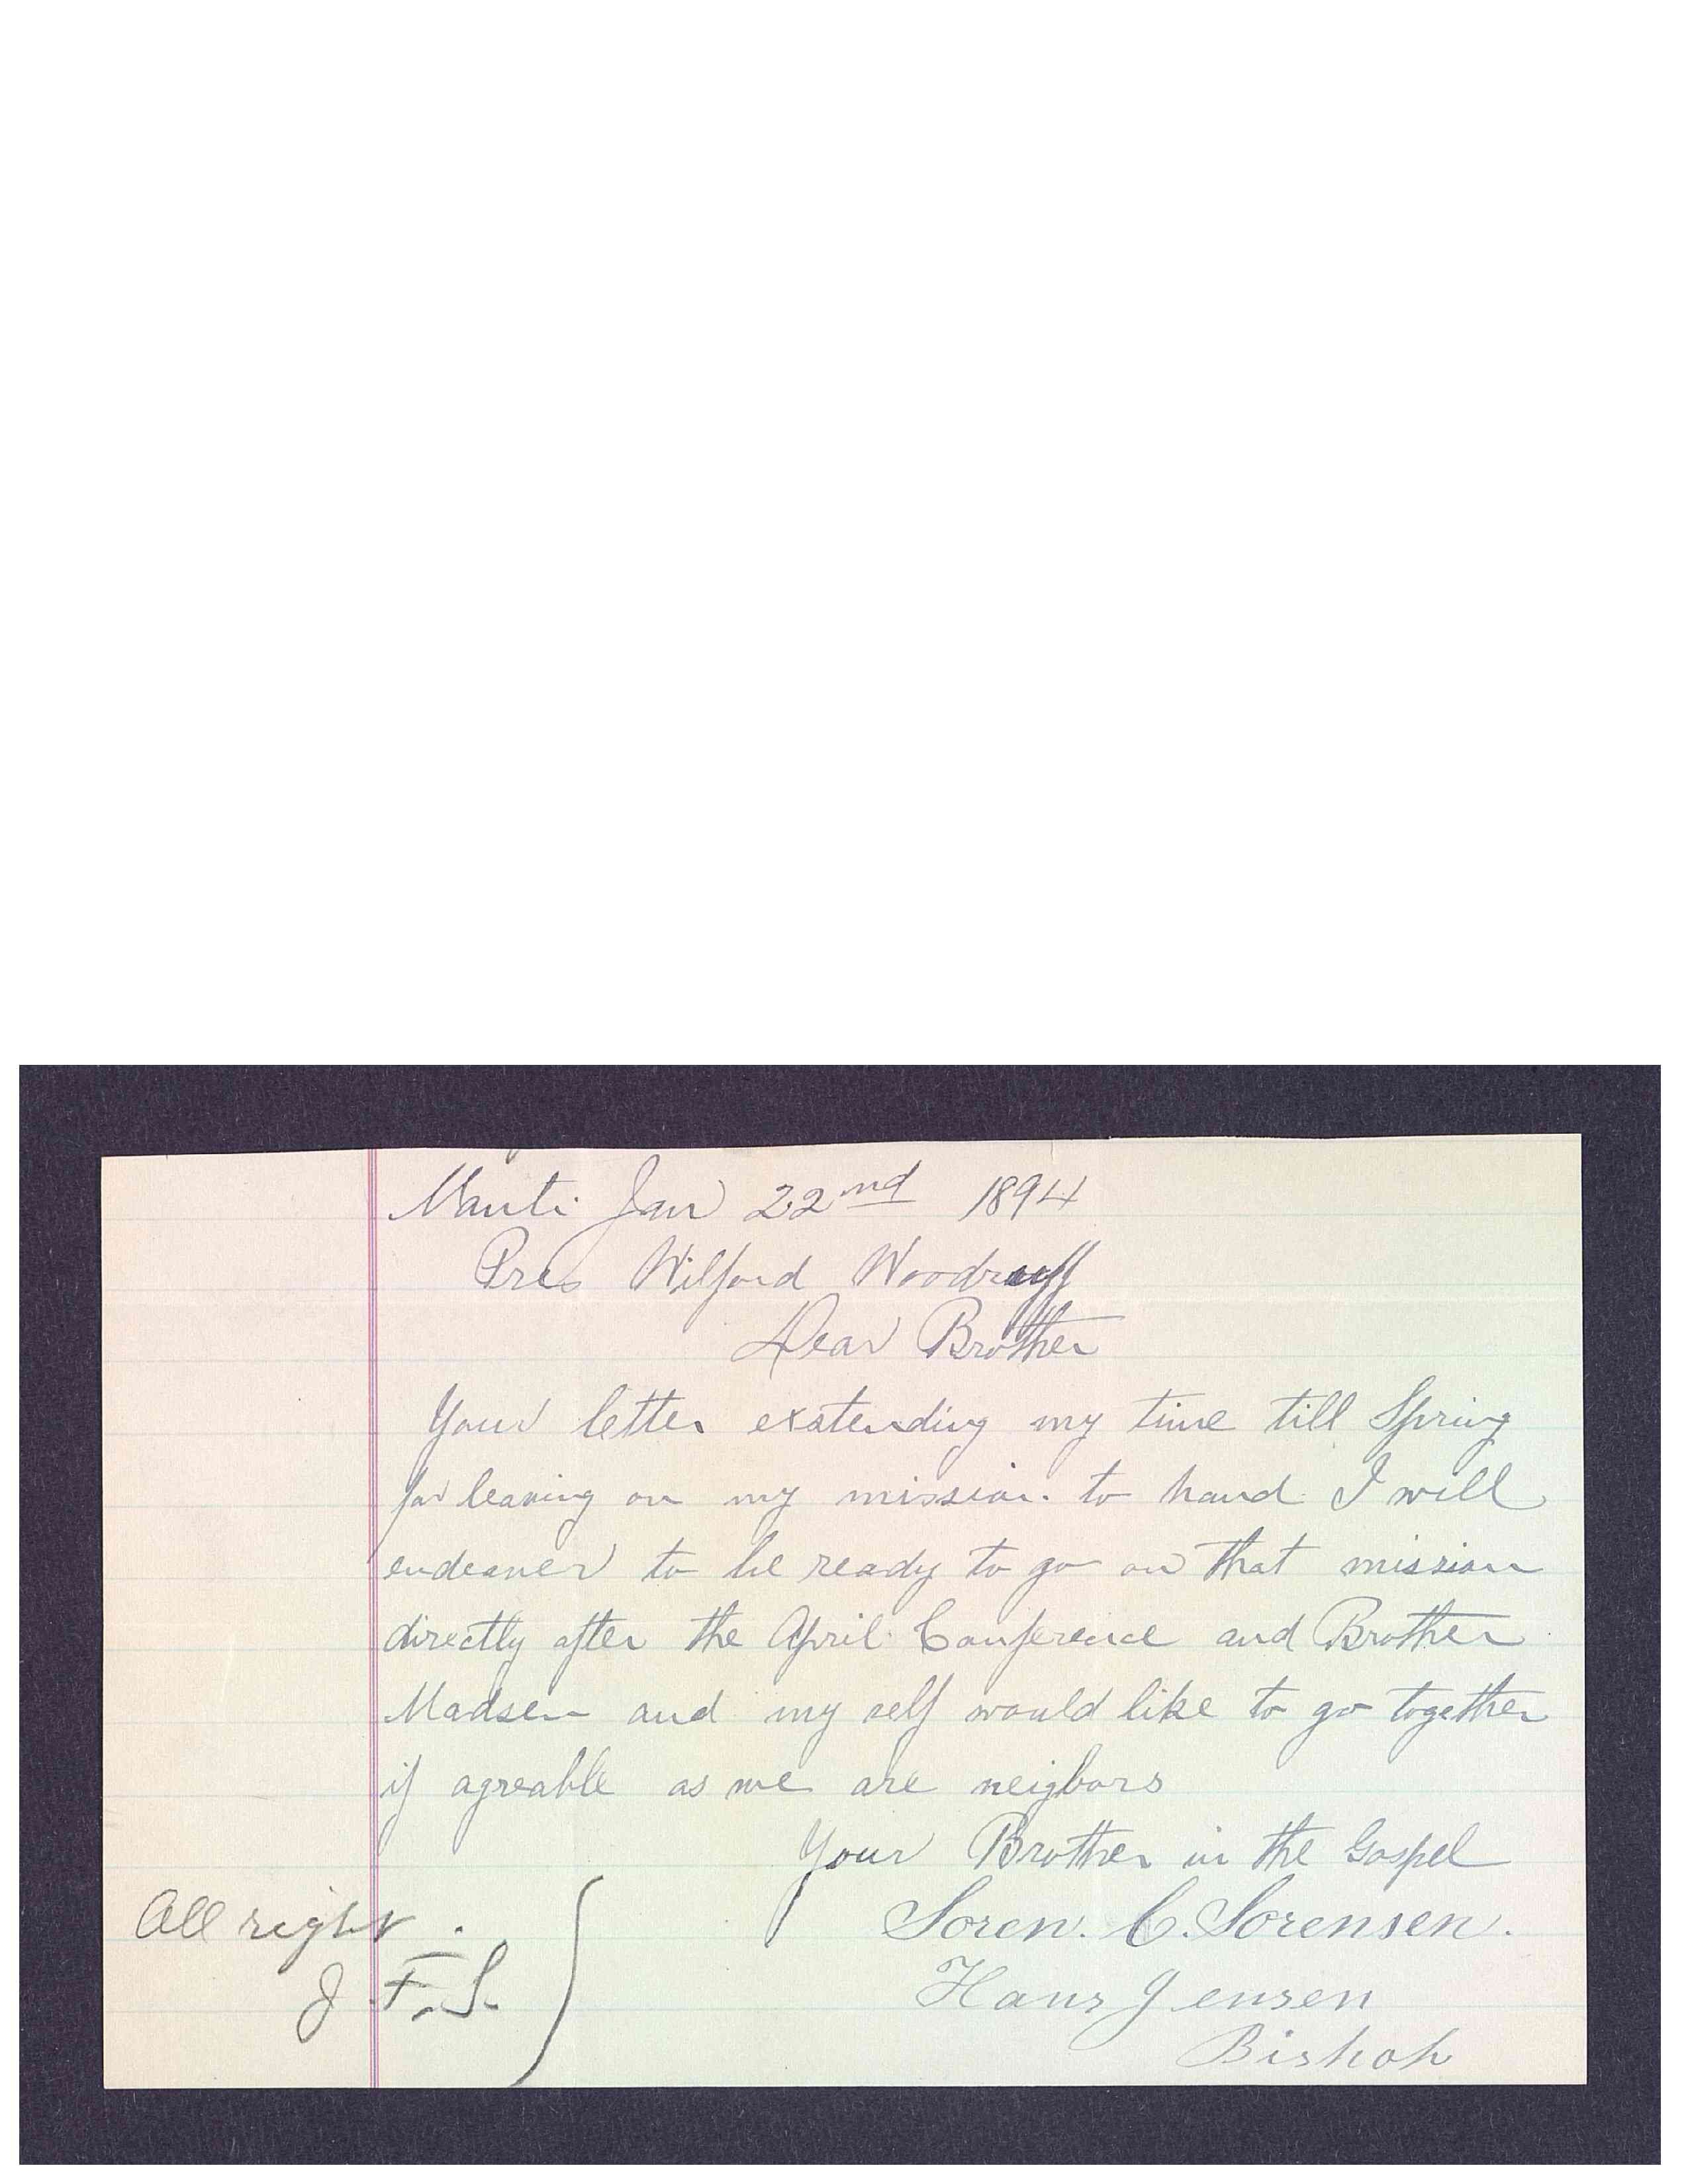 Manti Jan 22nd 1894
Pres Wilford Woodruff
Dear Brother
Your letter exstending my time till Spring
for leaving on my mission. to hand. I will
endeaver to be ready to go on that mission
directly after the April Conference and Brother
Madsen and my self would like to go together
if agreable as we are neigbors
Your Brother in the Gospel
Soren. C. Sorensen.
Hans Jensen
Bishop
All right.
J. F. S.